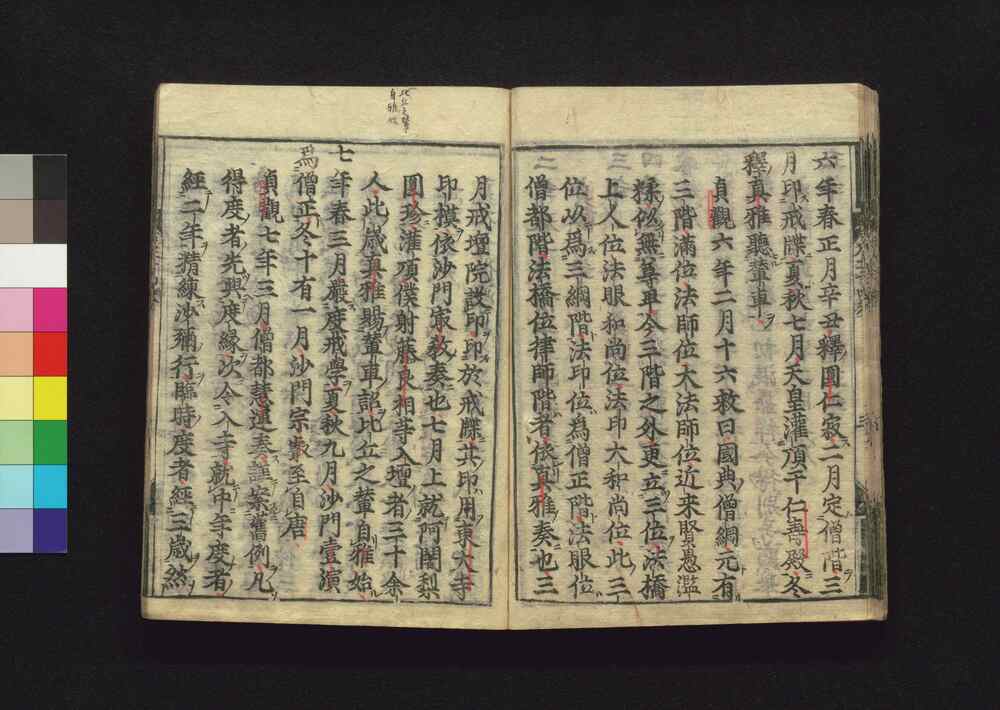 六年春正月辛丑釋圓仁寂二月定僧階三
月印戒牒夏秋七月天皇灌頂于仁壽殿冬
釋真雅聽輦車
貞觀六年二月十六敕曰國典僧綱元有
三階滿位法師位大法師位近来賢愚濫
糅似無尊卑今三階之外更立三位法橋
上人位法眼和尚位法印大和尚位此三
位以爲三綱階法印位爲僧正階法眼位
僧都階法橋位律師階者依真雅奏也三
月戒壇院設印印於戒牒其印用東大寺
印模依沙門寂教奏也七月上就阿闍梨
圓珍灌頂僕射藤良相等入壇者三十余
人此歳真雅賜輦車詔比丘之輦自雅始
七年春三月嚴度戒學夏秋九月沙門壹演
爲僧正冬十有一月沙門宗叡至自唐
貞觀七年三月僧都慧運奏謹案舊例凡
得度者先與度縁次令入寺就中年度者
經二年精練沙彌行臨時度者經三歳然